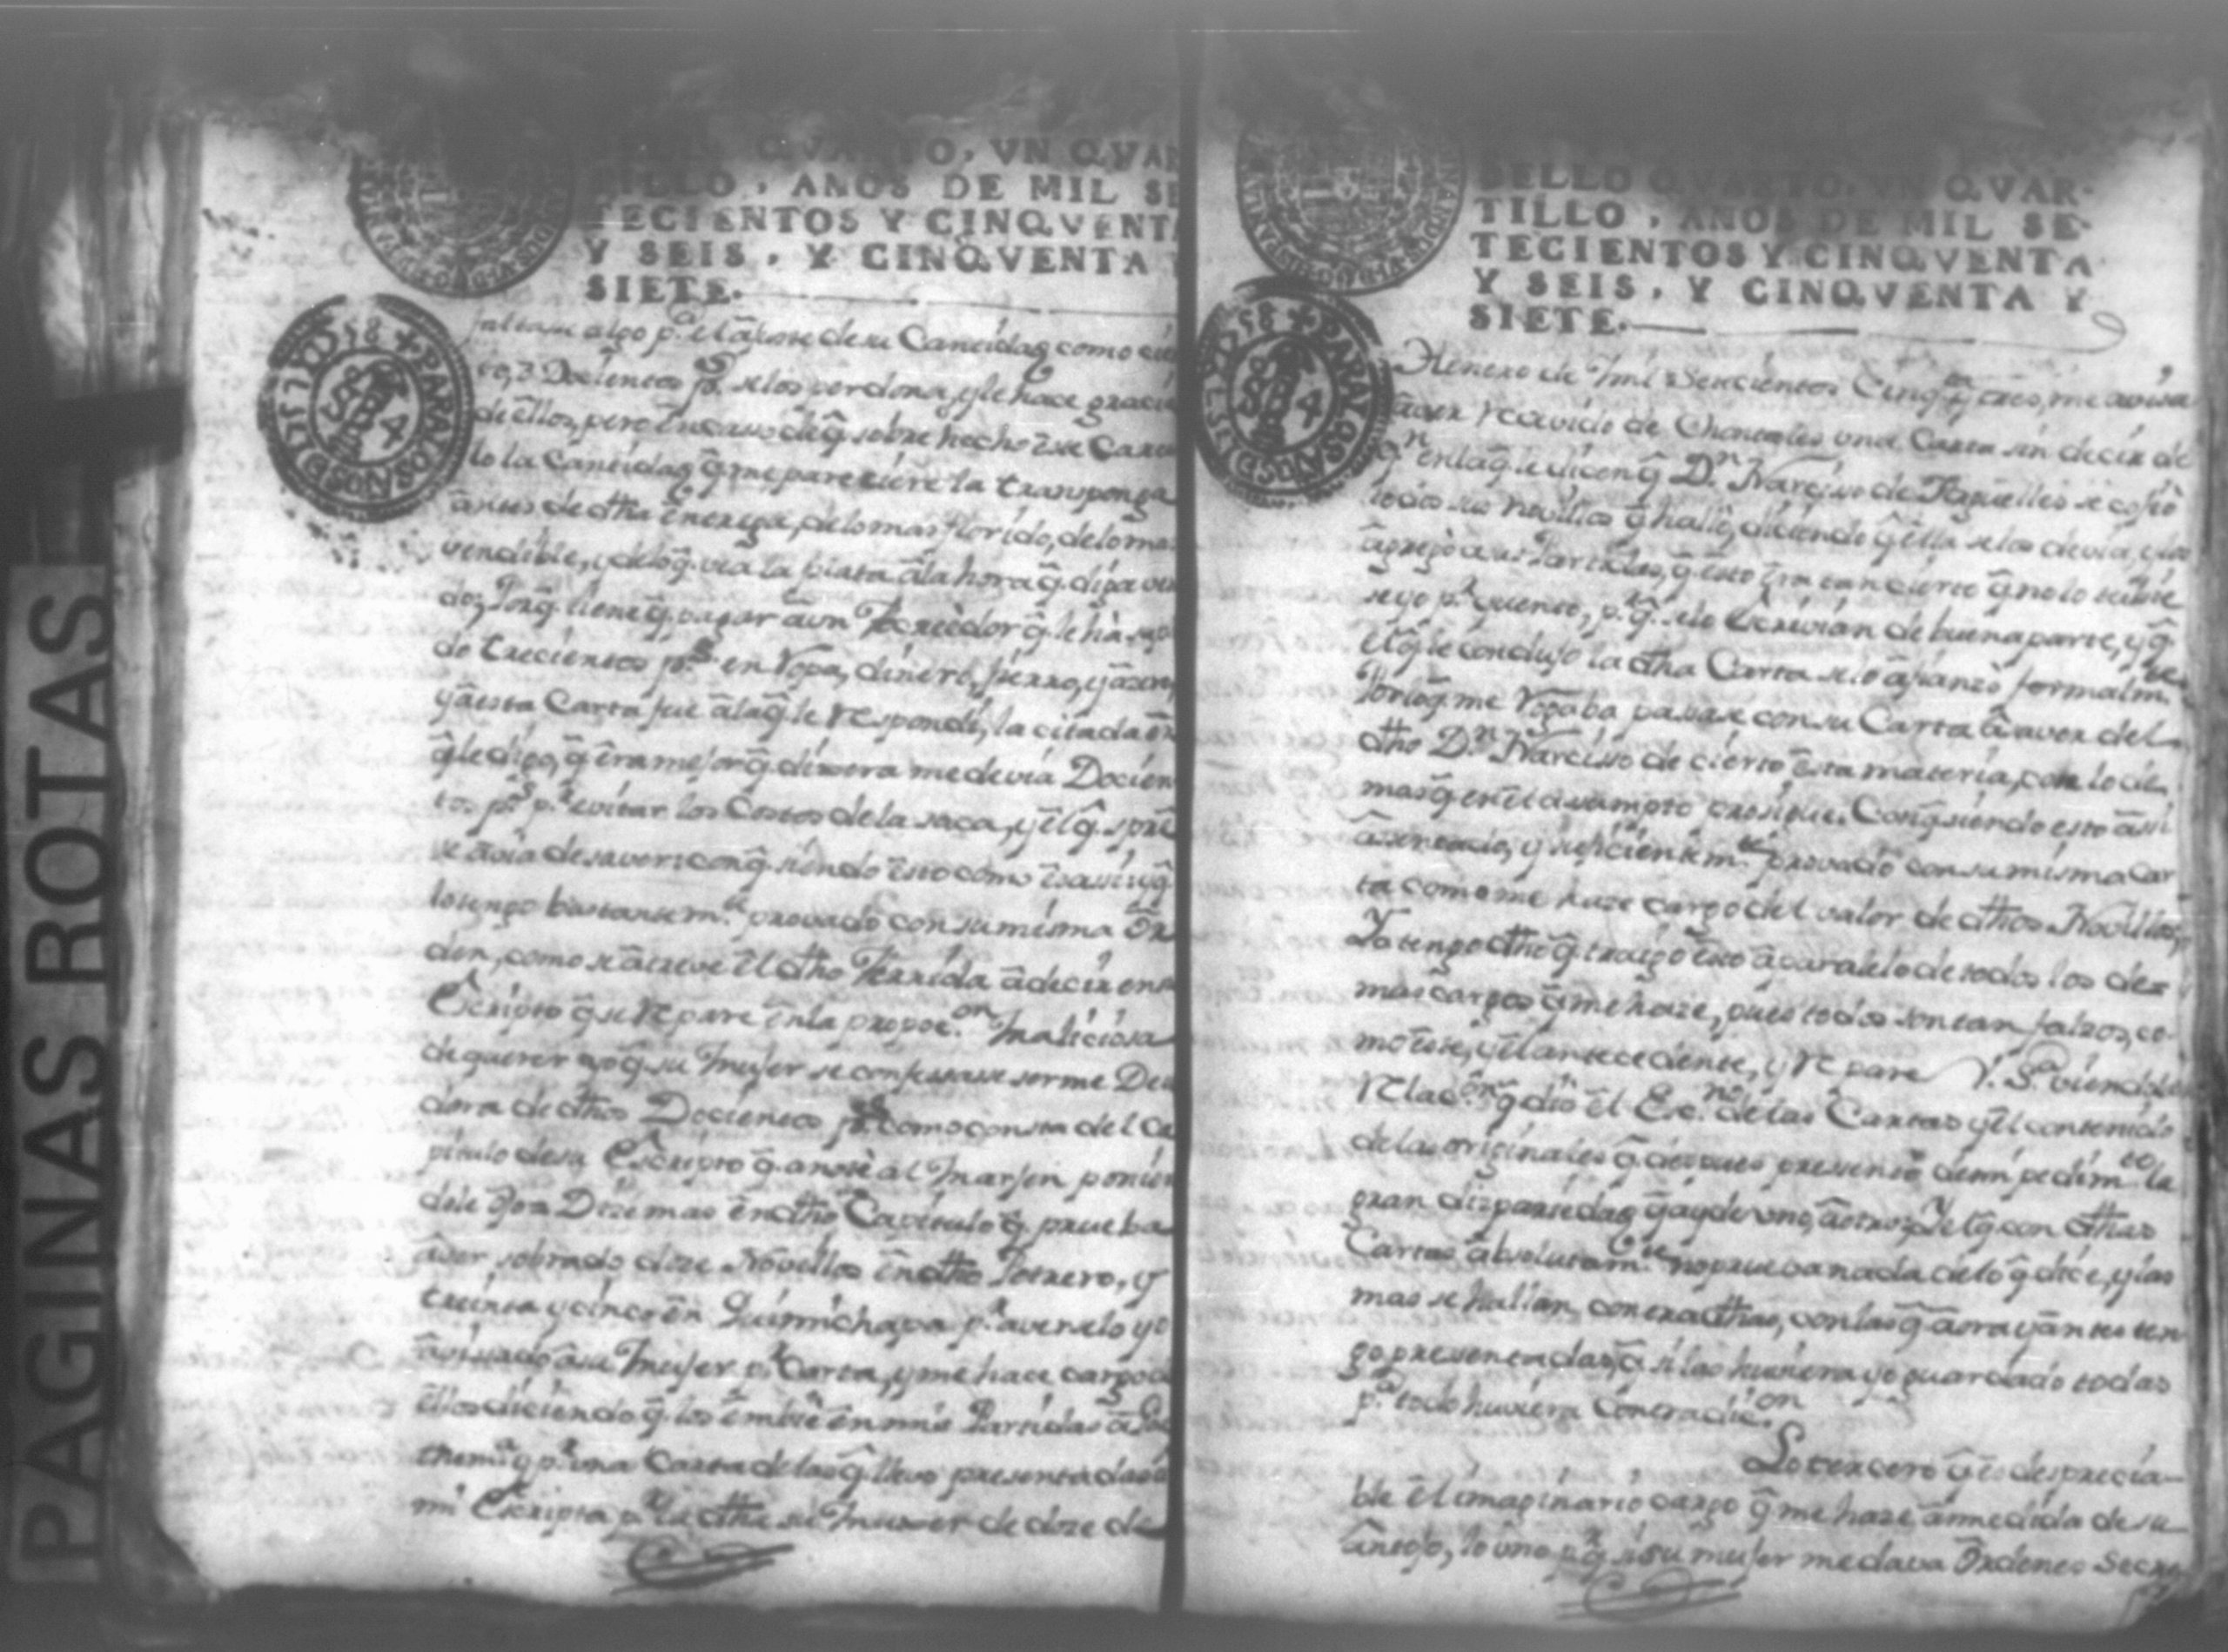 PAGINAS ROTAS
QVARTO, VN QVAR
TILLO, AÑOS DE MIL SE
TECIENTOS Y CINQVENTA
Y SEIS, Y CINQVENTA
SIETE.
PARA LOS AÑOS DE
faltase algo p.a el de su Cantidad como
to, Docientos p.s se los perdona, y le hace gracia
de ellos, pero
lo la Cantidad q̂ me pareziere la transponga
antes de dha entrega, de lo mas florido, de lo mas
vendible, y de lo q̂ vea la plata a la hora q̂ diga
Porq̂ tiene q̂ pagar a un Acreedor q̂ le ha
do trecientos p.s en Ropa, dinero, fierro, y
y a esta Carta fue a la q̂ le respondi, la citada en
q̂ le digo, q̂ era mejor q̂ dixera me devia Docien
tos p.s p.a evitar los Costos de la saca, y el q̂
se avia de saver: con q̂ siendo esto como es assi y q̂
lo tengo bastantem.te provado con su misma Or
den, como se atreve el dho Terrida a decir en
Escripto q̂ se repare en la propoc.on Maliciosa
de querer yo q̂ su Muger se confessase serme Deu
dora de dhos Docientos p.s como consta del Ca
pitulo de su Escripto q̂ anoté al Marjen
Dize mas en dho Capitulo q̂ prueba
aver sobrado doze Novillos en dho Potrero, y
treinta y cinco en Quimichapa p.r averselo yo
avisado a su Muger p.r Carta, y me hace cargo
ellos diciendo q̂ los embié en mis Partidas a
y p.r una Carta de las q̂ llevo presentadas
mi Escripto p.r la dha su Muger de doze de
SELLO QVARTO, VN QVAR-
TILLO, AÑOS DE MIL SE-
TECIENTOS Y CINQVENTA
Y SEIS, Y CINQVENTA Y
SIETE.
PARA LOS AÑOS DE
Henero de Mil Setecientos Cinq.ta y tres, me avisa
aver recevido de una Carta sin decir de
q.n en la q̂ le dicen q̂ D.n Narciso de se cojió
todos sus novillos q̂ halló, diciendo q̂ ella se los devia, y los
agregó a sus Partidas, q̂ esto era tan cierto q̂ no lo tubie
se yo p.r quento, p.r q̂ se lo Escrivian de buena parte, y q̂
el q̂ le condujo la dha Carta se lo afianzó formalm.te
Por lo q̂ me Rogaba pasase con su Carta a saver del
dho D.n Narcisso de cierto esta materia, con lo de
mas q̂ en el assumpto prosigue. Con q̂ siendo esto assi
assentado, y suficientem.te provado con su misma Car
ta como me haze cargo del valor de dhos Novillos,
Ya tengo dho q̂ traigo esto a paralelo de todos los de
mas cargos q̂ me haze, pues todos son tan falzos, co
mo este, y el antecediente, y repare V. S.a viendo la
Relac.on q̂ dió el Esc.no de las Cartas y el contenido
de las originales q̂ despues presentó de mi pedim.to la
gran dizparidad q̂ ay de uno, a otro: Y el q̂ con dhas
Cartas absolutam.te no prueva nada de lo q̂ dice, y las
mas se hallan contradhas, con las q̂ aora y antes ten
go presentadas, q̂ si las huviera yo guardado todas
p.a todo huviera Contradic.on
Lo tercero q̂ es desprecia-
ble el imaginario cargo q̂ me haze a medida de su
antojo, lo uno p.r q̂ si su muger me dava Ordenes Secre